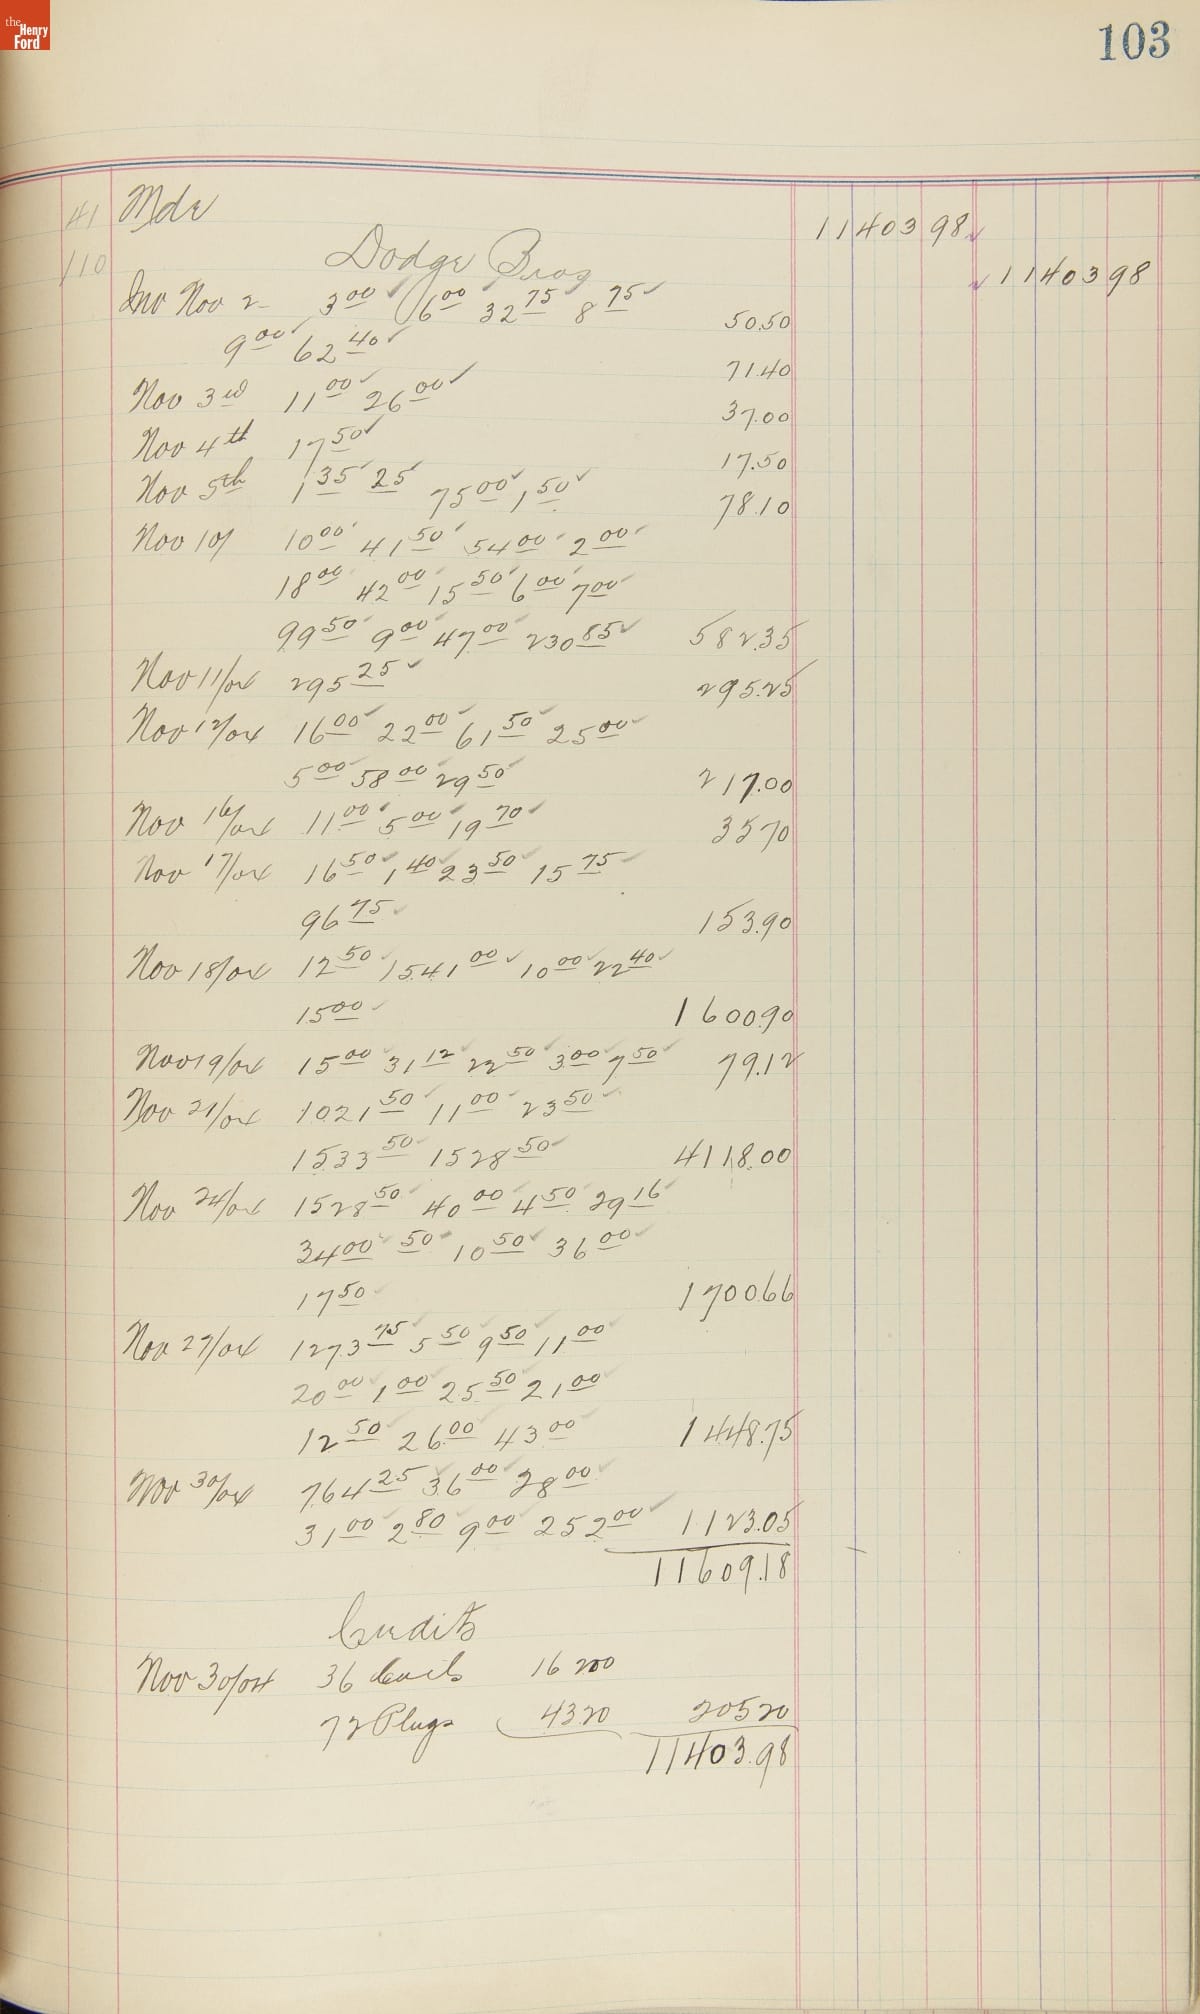 the Henry Ford
103
41 Mdr 11403 98
110 Dodge Bros 11403 98
Inv Nov 2 3 00 6 00 32 75 8 75 50.50
9 00 62 40 71.40
Nov 3rd 11 00 26 00 37.00
Nov 4th 17 50 17.50
Nov 5th 1 35 25 75 00 1 50 78.10
Nov 10/ 10 00 41 50 54 00 2 00
18 00 42 00 15 50 6 00 7 00
99 50 9 00 47 00 230 85 582.35
Nov 11/04 295 25 295.25
Nov 12/04 16 00 22 00 61 50 25 00
5 00 58 00 29 50 217.00
Nov 16/04 11 00 5 00 19 70 35 70
Nov 17/04 16 50 1 40 23 50 15 75
96 75 153.90
Nov 18/04 12 50 1541 00 10 00 22 40
15 00 1600.90
Nov 19/04 15 00 31 12 22 50 3 00 7 50 79.12
Nov 21/04 1021 50 11 00 23 50
1533 50 1528 50 4118.00
Nov 24/04 1528 50 40 00 4 50 29 16
34 00 50 10 50 36 00
17 50 1700 66
Nov 27/04 1273 75 5 50 9 50 11 00
20 00 1 00 25 50 21 00
12 50 26 00 43 00 1448.75
Nov 30/04 764 25 36 00 28 00
31 00 2 80 9 00 252 00 1123.05
11609.18
Credits
Nov 30/04 36 Coils 16 200
72 Plugs 43 20 205 20
11403.98